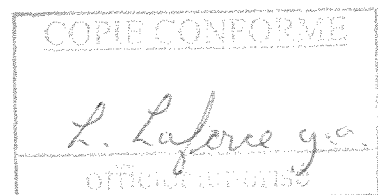 COPIE CONFORME
L. Laforce g.a.
officier autorisé